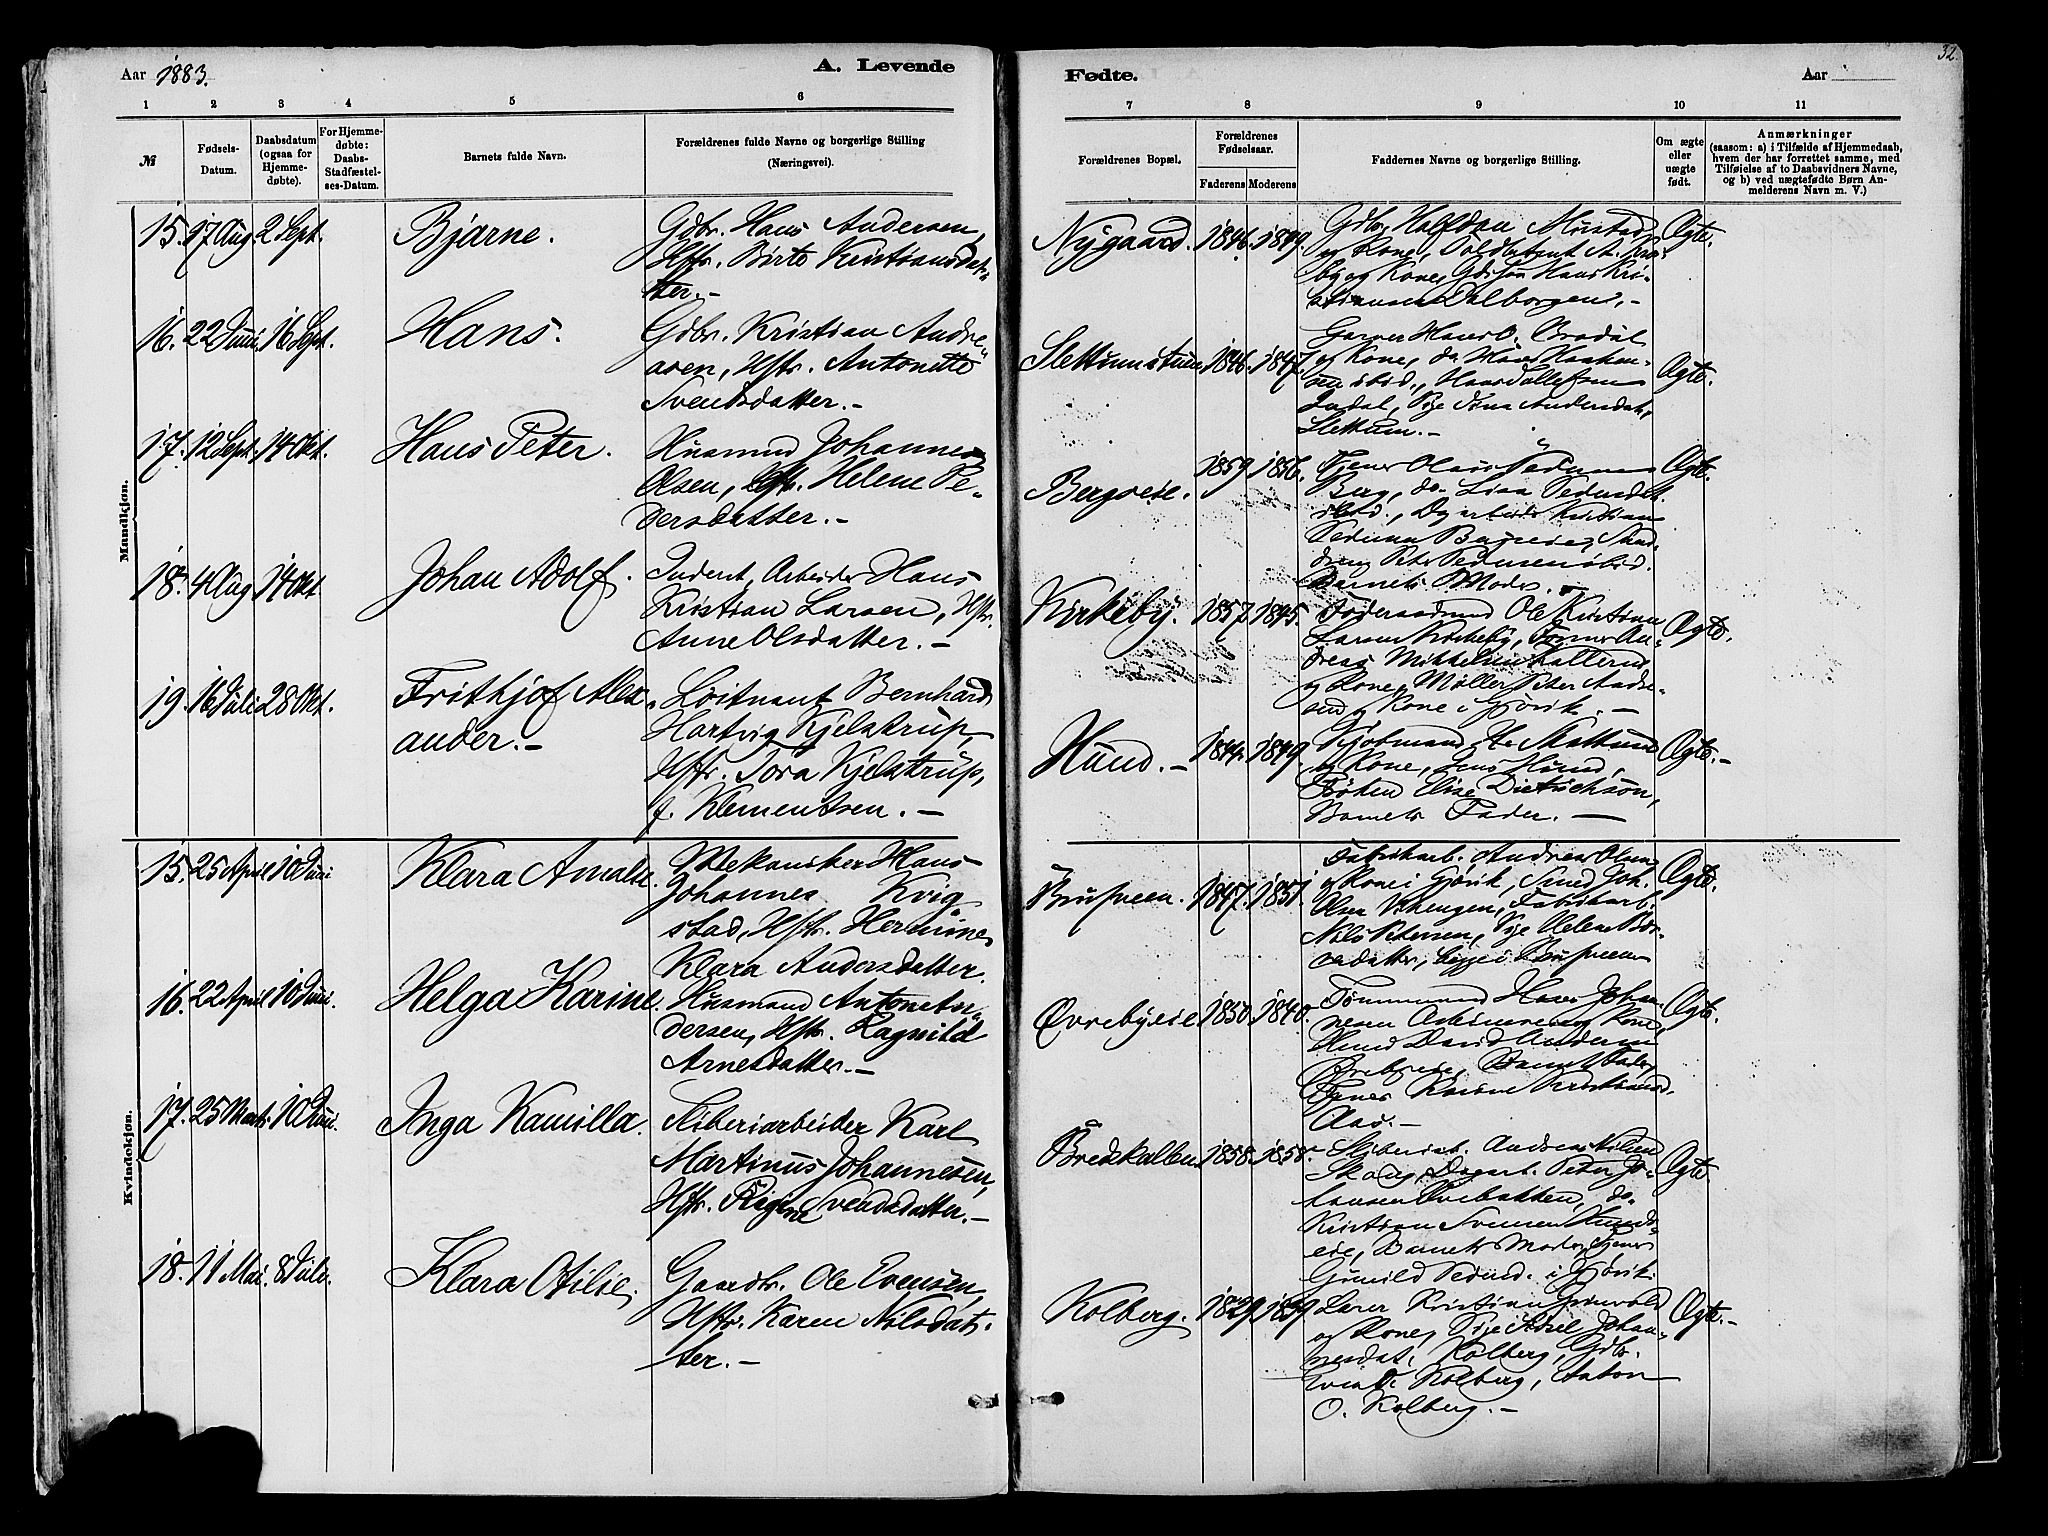 Aar 1883.
A. Levende
Fødte.
Aar
32.
1 2 3 4 5 6 7 8 9 10 11
№
Fødsels-
Datum.
Daabsdatum
(ogsaa for
Hjemme-
døbte).
For Hjemme-
døbte:
Daabs-
Stadfæstel-
ses-Datum.
Barnets fulde Navn.
Forældrenes fulde Navne og borgerlige Stilling
(Næringsvei).
Forældrenes Bopæl.
Forældrenes
Fødselsaar.
Faderens Moderens
Faddernes Navne og borgerlige Stilling.
Om ægte
eller
uægte
født.
Anmærkninger
(saasom: a) i Tilfælde af Hjemmedaab,
hvem der har forrettet samme, med
Tilføielse af to Daabsvidners Navne,
og b) ved uægtefødte Børn An-
melderens Navn m. V.)
Mandkjøn.
15. 17 Aug. 2 Sept.
Bjarne.
Gdbr. Hans Andersen,
Hstr. Birte Kristiansdat-
ter.-
Nygaard. 1846. 1849.
Gdbr. Halfdan Mustad
og Kone,
by og Kone, Gdbr. Hans Kri-
stiansen Dalborgen.-
Ægte.
16. 22 Juni. 16 Sept.
Hans.
Gdbr. Kristian Andre-
asen, Hstr. Antonette
Svendsdatter.-
Slettumstuen 1846. 1847.
Garver Hans O. Bradal
og Kone, do
ibid.,
Pige Andersdat.
Slettum.-
Ægte.
17. 12 Sept. 14 Okt.
Hans Peter.
Husmand Johannes
Olsen, Hstr. Helene Pe-
dersdatter.-
Bergseie. 1859 1856.
Tjener Olaus Pedersen
Berg, do. Lina Pedersdat.
ibid., Dagarbeider Kristian
Pedersen Bergseie,
Peter Pedersen ibid.
Barnets Moder.
Ægte.
18. 4 Aug 14 Okt
Johan Adolf.
Inderst, Arbeider Hans
Kristian Larsen, Hstr.
Anne Olsdatter.-
Kirkeby. 1857. 1845.
Føderaadsmand Ole Kristian
Larsen Kirkeby, An-
dreas Mikkelsen
og Kone, Møller Peter Andre-
sen og Kone i Gjøvik.-
Ægte.
19. 16 Juli 28 Okt.
Frithjof Alex-
ander.-
Loitnant Bernhard
Hartvig Kjelstrup,
Hstr. Tora Kjelstrup,
f. Klementsen.-
Hund.- 1844. 1849
Kjøbmand H. Skattum
og Kone, Jens Hund,
Frøken Elise Dietrichson,
Barnets Fader.-
Ægte.-
Kvindekjøn.
15. 25 April 10 Juni
Klara Amalie.
Mekaniker Hans
Johannes Kvig-
stad, Hstr. Hermine
Klara Andersdatter.
Brusveen. 1847. 1851.
Fabrikarb. Andreas Olsen
og Kone i Gjøvik, Smed Joh.
Olsen Vikengen, Fabrikarb.
Nils Petersen, Pige Helene
datter, begge i Brusveen
Ægte.
16. 22 April 10 Juni.
Helga Karine.
Husmand Anton An-
dersen, Hstr. Ragnild
Arnesdatter.-
Øvrebyeie 1850. 1840.
Tømmermand Hans Johan-
nesen og Kone,
Husmd David Andersen
Øvrebyeie, Barnets Fader,
Tjener Karine Kristiansd.
Aas.-
Ægte.
17. 25 Marts 10 Juni.
Inga Kamilla.
Sliberiarbeider Karl
Martinus Johannesen,
Hstr. Regine Svendsdatter.-
Bredskallen 1858. 1858.
Sliberiarb. Andreas Nilsen
Skaug, Dagarb. Peter Jo-
hansen Øvrebakken, do.
Kristian Svensen Hunds-
eie, Barnets Moder, Tjener
Gunild Pedersd. i Gjøvik.
Ægte
18. 11 Mai. 8 Juli.
Klara Otilie.
Gaardbr. Ole Evensen,
Hstr. Karen Nilsdat-
ter.-
Kolberg. 1829 1839
Lærer Kristian Grinvold
og Kone, Pige Johan-
nesdat. Kolberg, Gdbr.
Kolberg, Anton
O. Kolberg.-
Ægte.-